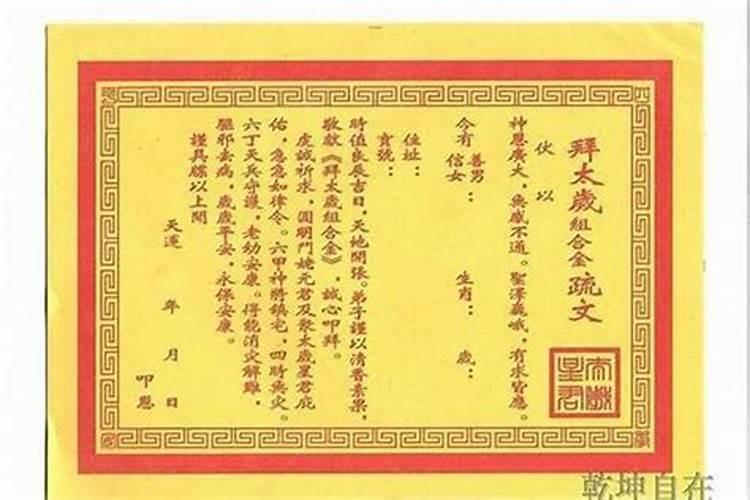 拜太歲組合金疏文
伏以
神恩廣大，無感不通。聖澤巍峨，有求皆應。
今有善男信女：　生肖：　歲：
住址：
寶號：
時值良辰吉日，天地開張。弟子謹以清香素果，
敬獻《拜太歲組合金》，誠心叩拜。
虔誠祈求，圓明門姥元君及眾太歲星君庇
佑，急急如律令。六甲神將鎮宅，四時無災。
六丁天兵守護，老幼安康。得能消災解難，
驅邪去病，歲歲平安，永保安康。
謹具牒以上聞
天運　年　月　日
叩恩
太歲星君
乾坤自在